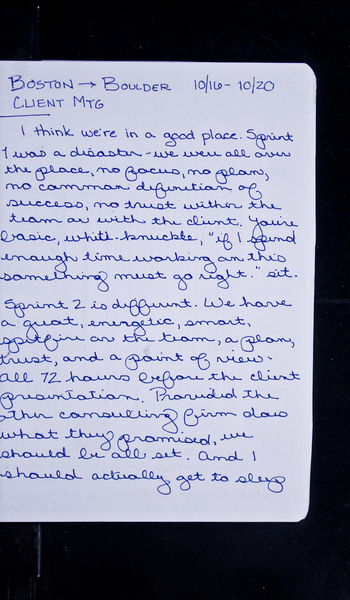 BOSTON → BOULDER 10/16 - 10/20
CLIENT MTG
I think we're in a good place. Sprint
1 was a disaster - we were all over
the place, no focus, no plan,
no common definition of
success, no trust within the
team or with the client. You're
basic, white-knuckle, "if I spend
enough time working on this
something must go right." sit.
Sprint 2 is different. We have
a great, energetic, smart,
spitfire on the team, a plan,
trust, and a point of view.
All 72 hours before the client
presentation. Provided the
other consulting firm does
what they promised, we
should be all set. And I
should actually get to sleep